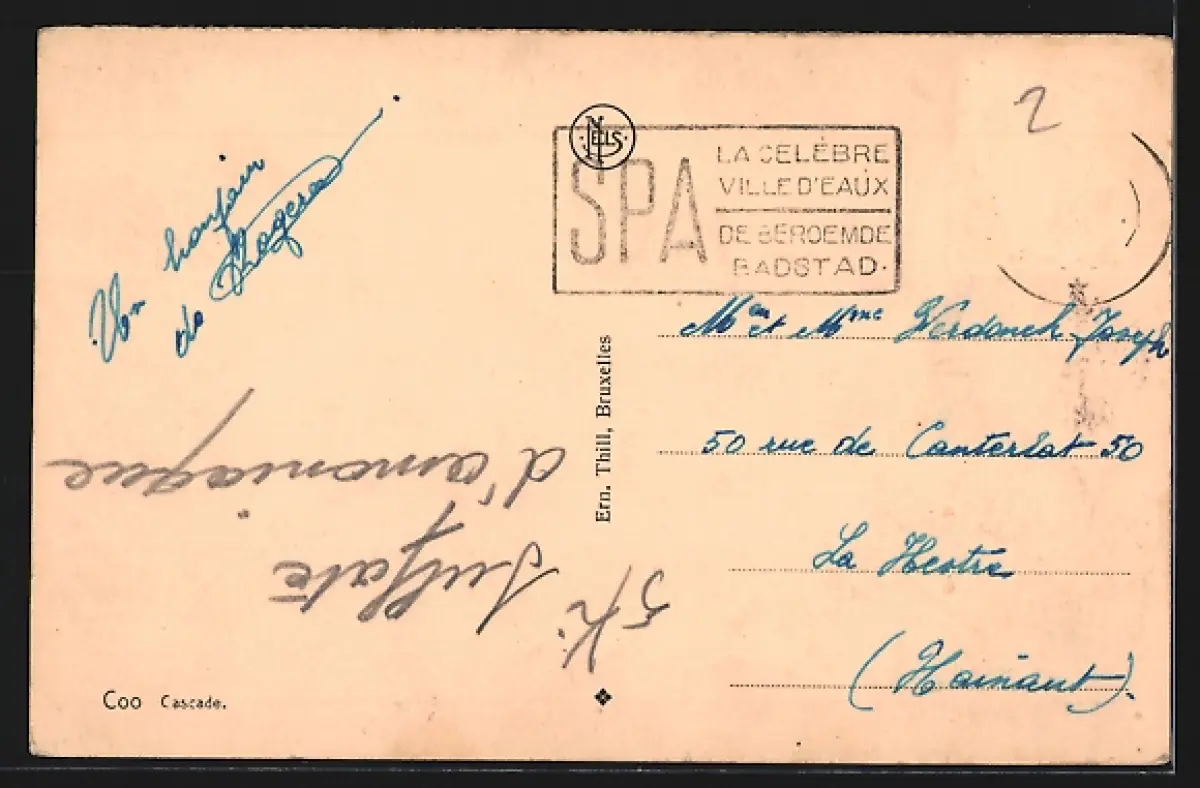 Un bonjour
de Rogers
NELS
SPA
LA CELÈBRE
VILLE D'EAUX
DE BEROEMDE
BADSTAD.
2
Mr et Mme Verdonck Joseph
50 rue de Canterlat 50
La Hestre
(Hainaut).
Ern. Thill, Bruxelles
5 K. Sulfate
d'amoniaque
Coo Cascade.